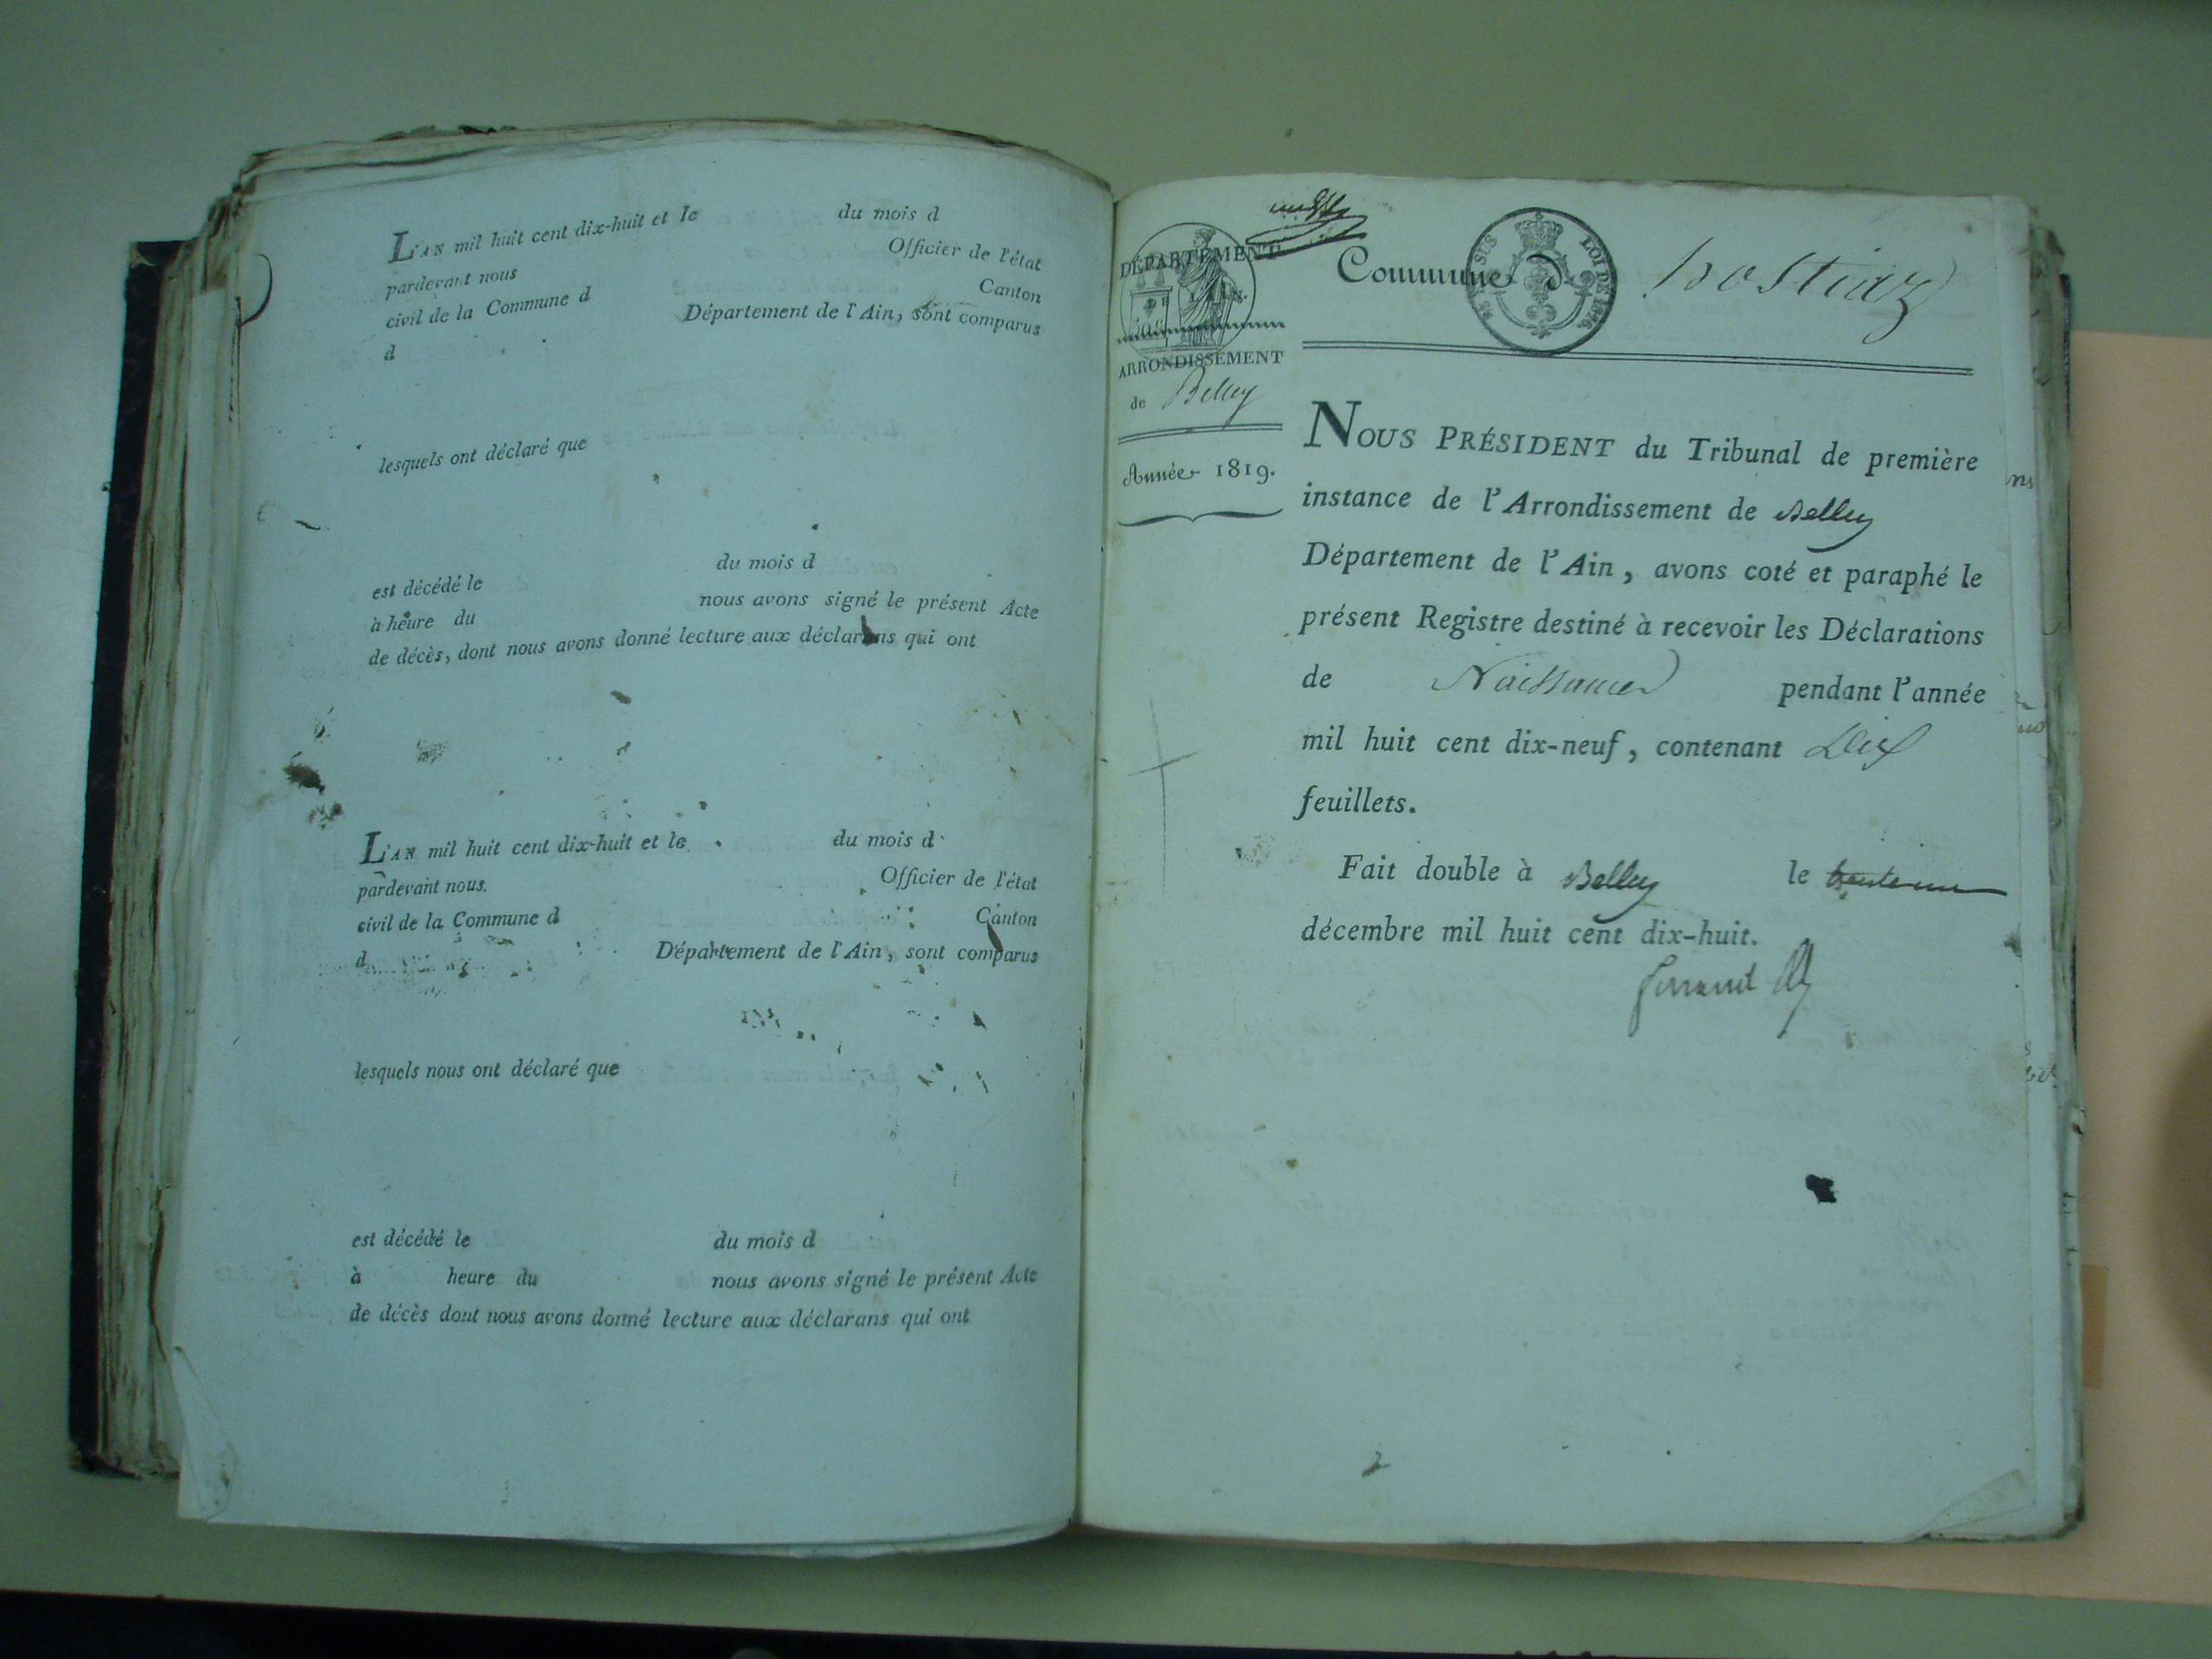 L'AN mil huit cent dix-huit et le du mois d
pardevant nous Officier de l'état
civil de la Commune d Canton
d Département de l'Ain, sont comparus
lesquels ont déclaré que
est décédé le du mois d
à heure du nous avons signé le présent Acte
de décès, dont nous avons donné lecture aux déclarans qui ont
L'AN mil huit cent dix-huit et le du mois d
pardevant nous Officier de l'état
civil de la Commune d Canton
d Département de l'Ain, sont comparus
lesquels nous ont déclaré que
est décédé le du mois d
à heure du nous avons signé le présent Acte
de décès dont nous avons donné lecture aux déclarans qui ont
DÉPARTEMENT
ARRONDISSEMENT
de Belley
Année 1819.
Commune d hostiaz
EN SUS LOI DE 1816.
NOUS PRÉSIDENT du Tribunal de première
instance de l'Arrondissement de Belley
Département de l'Ain, avons coté et paraphé le
présent Registre destiné à recevoir les Déclarations
de Naissances pendant l'année
mil huit cent dix-neuf, contenant Dix
feuillets.
Fait double à Belley le trente un
décembre mil huit cent dix-huit.